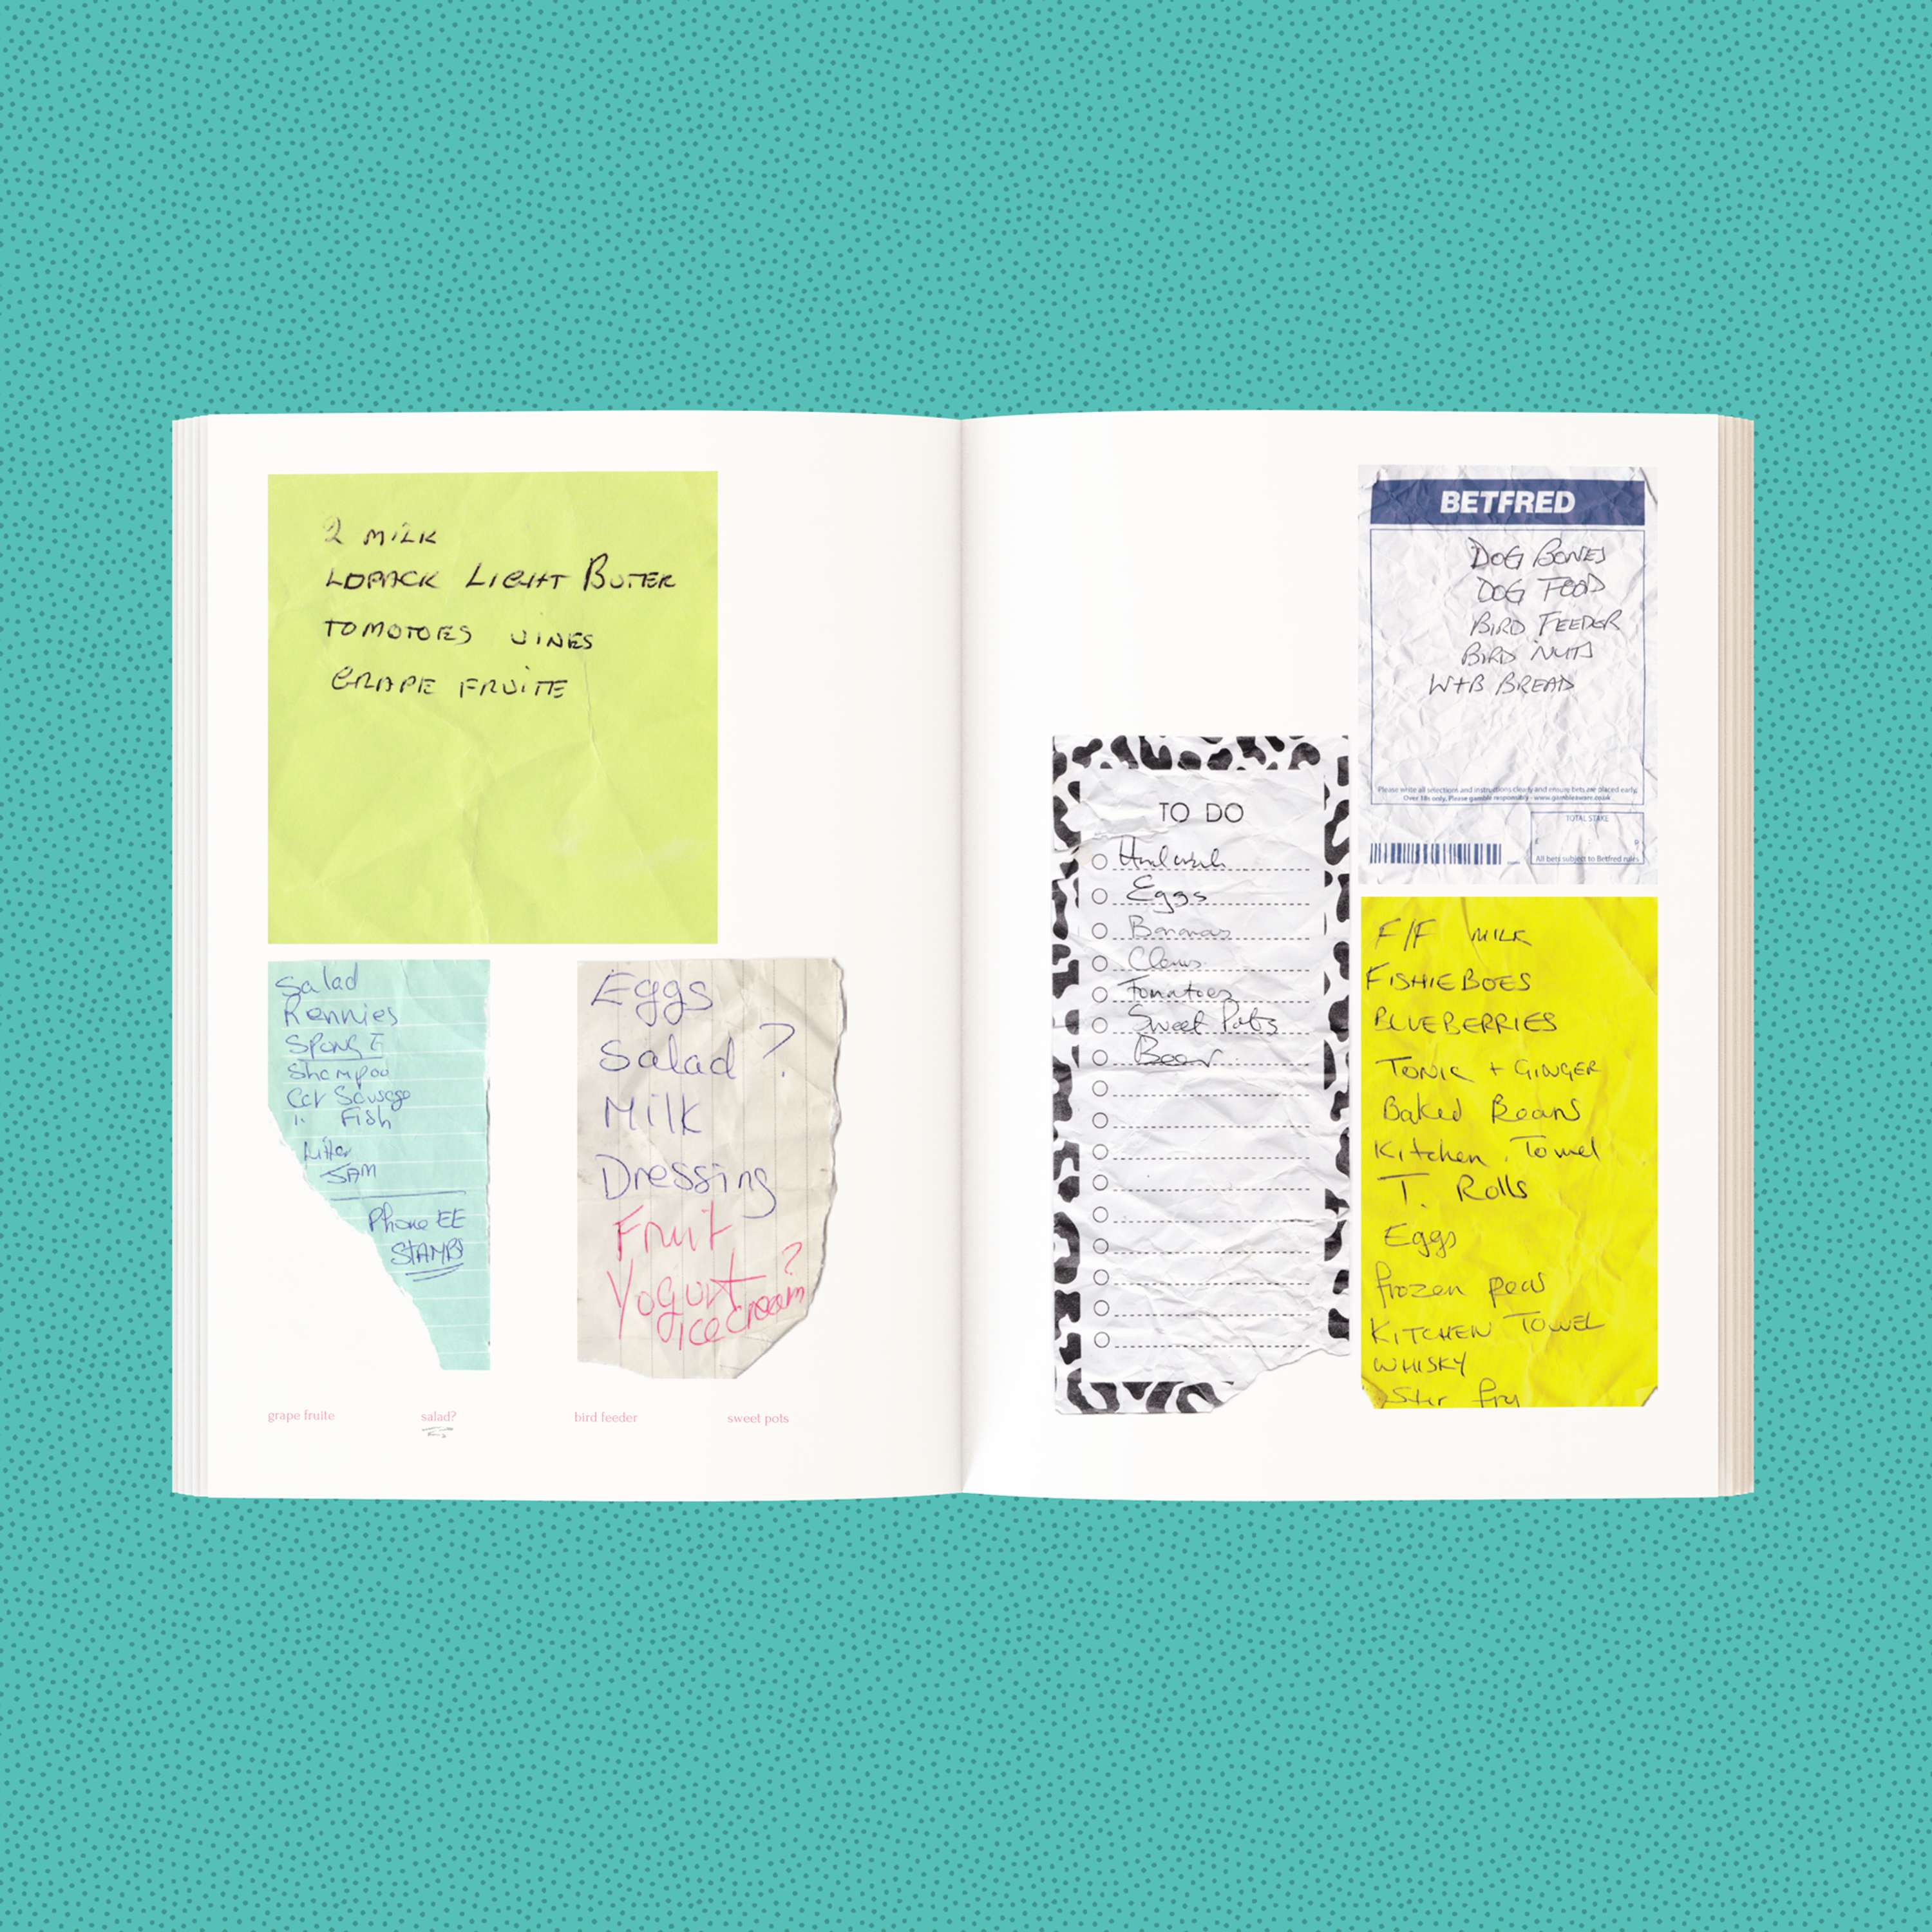 2 MILK
LDPACK LIGHT BUTER
TOMOTOES VINES
GRAPE FRUITE
Salad
Rennies
SPONGE
Shampoo
Cat Sausage
" Fish
Litter
JAM
Phone EE
STAMPS
Eggs
Salad ?
Milk
Dressing
Fruit
Yogurt ?
ice cream
grape fruite
salad?
bird feeder
sweet pots
BETFRED
DOG BONES
DOG FOOD
BIRD FEEDER
BIRD NUTS
W+B BREAD
Please write all selections and instructions clearly and ensure bets are placed early.
Over 18s only. Please gamble responsibly - www.gambleaware.co.uk
TOTAL STAKE
£ P
All bets subject to Betfred rules
TO DO
Handwash
Eggs
Bananas
Tomatoes
Sweet Pots
Beer
F/F MILK
FISHIEBOES
BLUEBERRIES
TONIC + GINGER
Baked Beans
Kitchen Towel
T. Rolls
Eggs
frozen peas
KITCHEN TOWEL
WHISKY
Stir fry